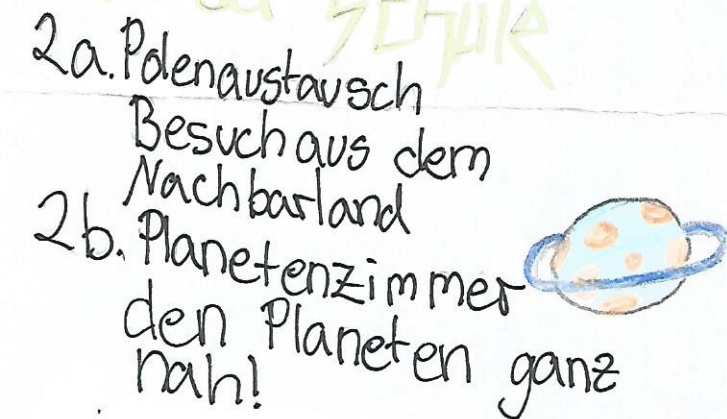 Schule
2a. Polenaustausch
Besuch aus dem
Nachbarland
2b. Planetenzimmer
den Planeten ganz
nah!